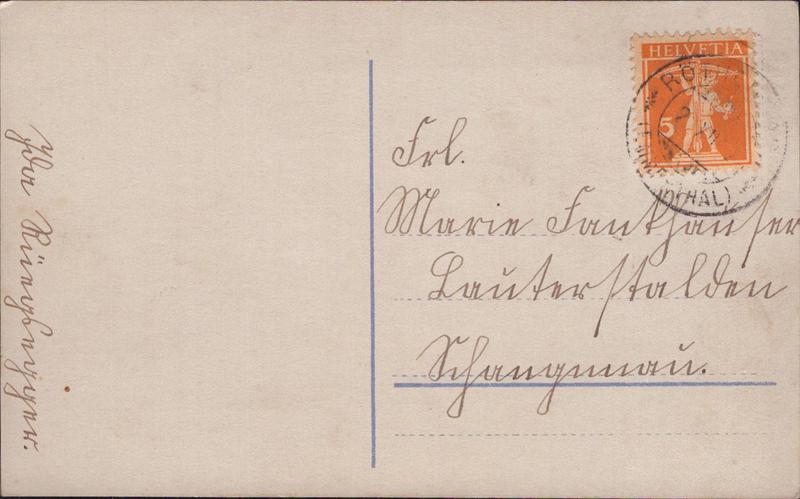 Ida Rüegsegger.
HELVETIA
5
RÖ
THAL)
Frl.
Marie Fankhauser
Lauterstalden
Schangnau.